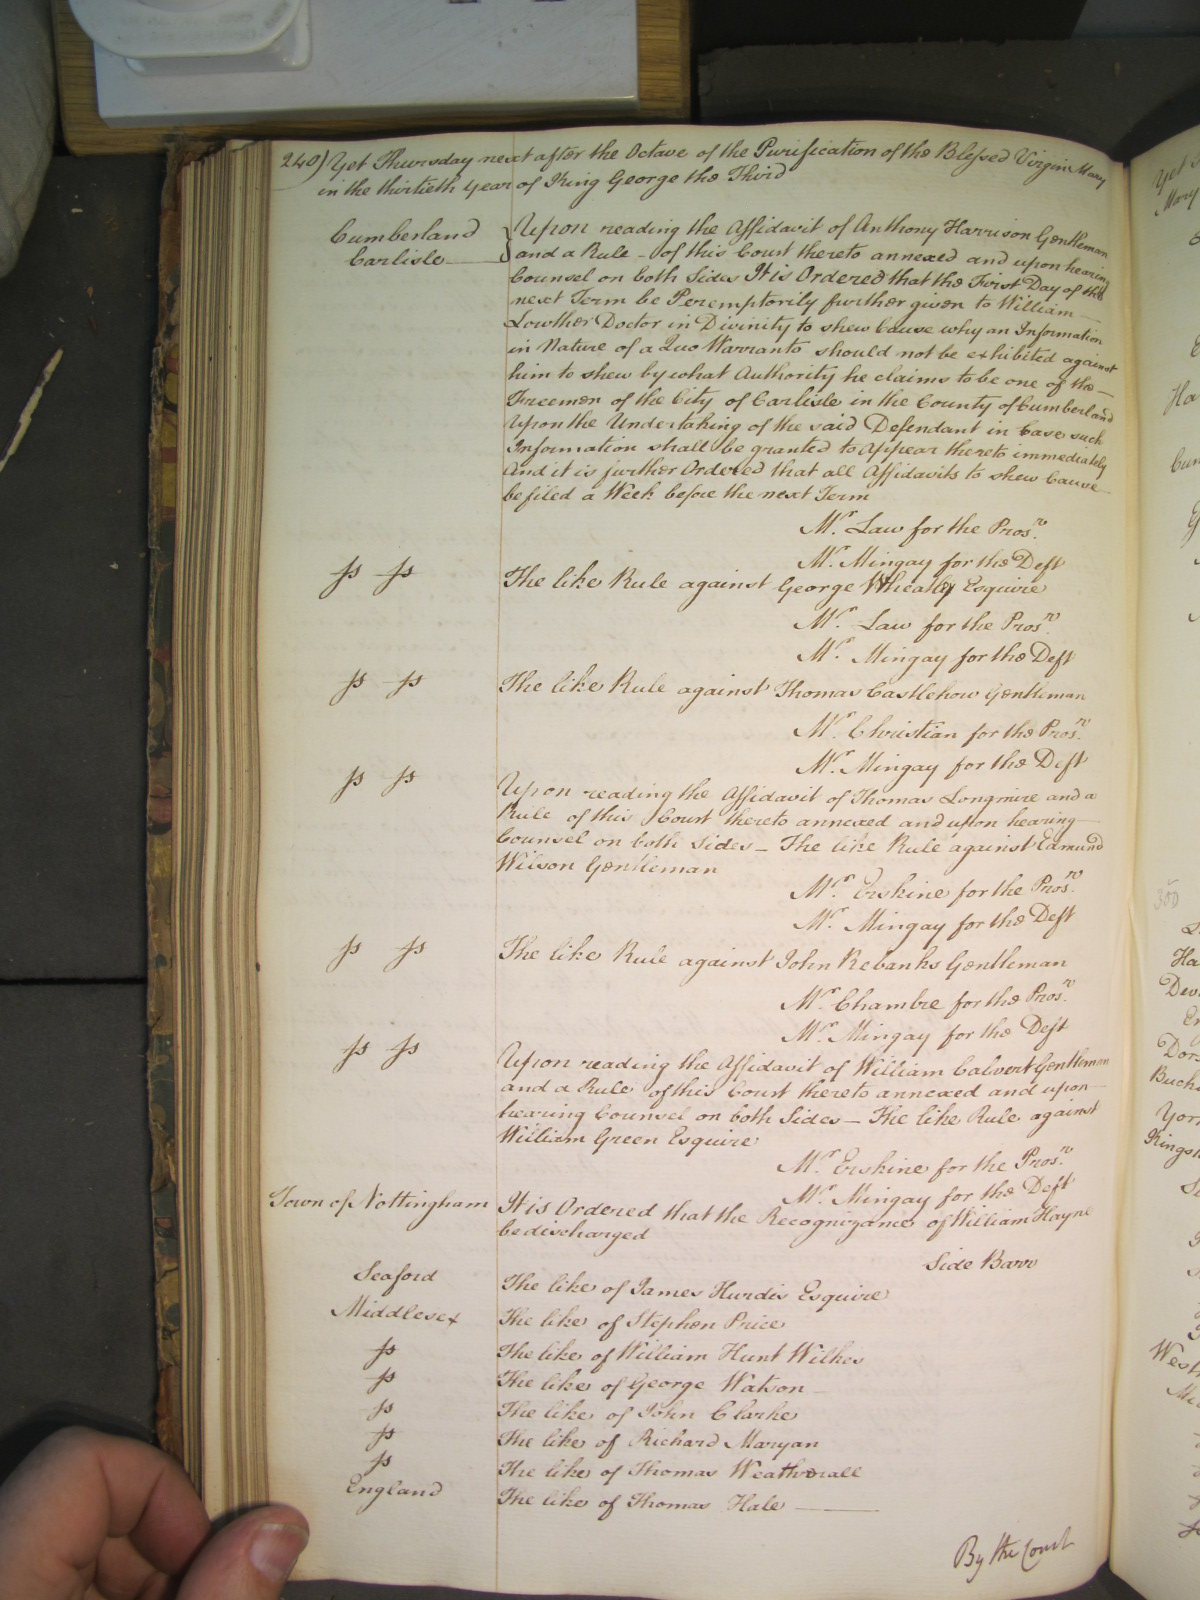 240) Yet Thursday next after the Octave of the Purification of the Blessed Virgin Mary
in the thirtieth Year of King George the Third
Cumberland
Carlisle
Upon reading the Affidavit of Anthony Harrison Gentleman
and a Rule - of this Court thereto annexed and upon hearing
Counsel on both Sides It is Ordered that the First Day of the
next Term be Peremptorily further given to William
Lowther Doctor in Divinity to shew Cause why an Information
in Nature of a Quo Warranto should not be exhibited against
him to shew by what Authority he claims to be one of the
Freemen of the City of Carlisle in the County of Cumberland
Upon the Undertaking of the said Defendant in Case such
Information shall be granted to appear thereto immediately
And it is further Ordered that all Affidavits to shew Cause
be filed a Week before the next Term
Mr. Law for the Prosr.
Mr. Mingay for the Deft
ss ss The like Rule against George Wheatley Esquire
Mr. Law for the Prosr.
Mr. Mingay for the Deft
ss ss The like Rule against Thomas Castlehow Gentleman
Mr. Christian for the Prosr.
Mr. Mingay for the Deft
ss ss Upon reading the Affidavit of Thomas Longmire and a
Rule of this Court thereto annexed and upon hearing
Counsel on both Sides - The like Rule against Edmund
Wilson Gentleman
Mr. Erskine for the Prosr.
Mr. Mingay for the Deft
ss ss The like Rule against John Rebanks Gentleman
Mr. Chambre for the Prosr.
Mr. Mingay for the Deft
ss ss Upon reading the Affidavit of William Calvert Gentleman
and a Rule of this Court thereto annexed and upon
hearing Counsel on both Sides - The like Rule against
William Green Esquire
Mr. Erskine for the Prosr.
Mr. Mingay for the Deft
Town of Nottingham It is Ordered that the Recognizance of William Hayne
be discharged
Side Barr
Seaford The like of James Hurdis Esquire
Middlesex The like of Stephen Price
ss The like of William Hunt Wilkes
ss The like of George Watson
ss The like of John Clarke
ss The like of Richard Maryan
ss The like of Thomas Weatherall
England The like of Thomas Hale
By the Court